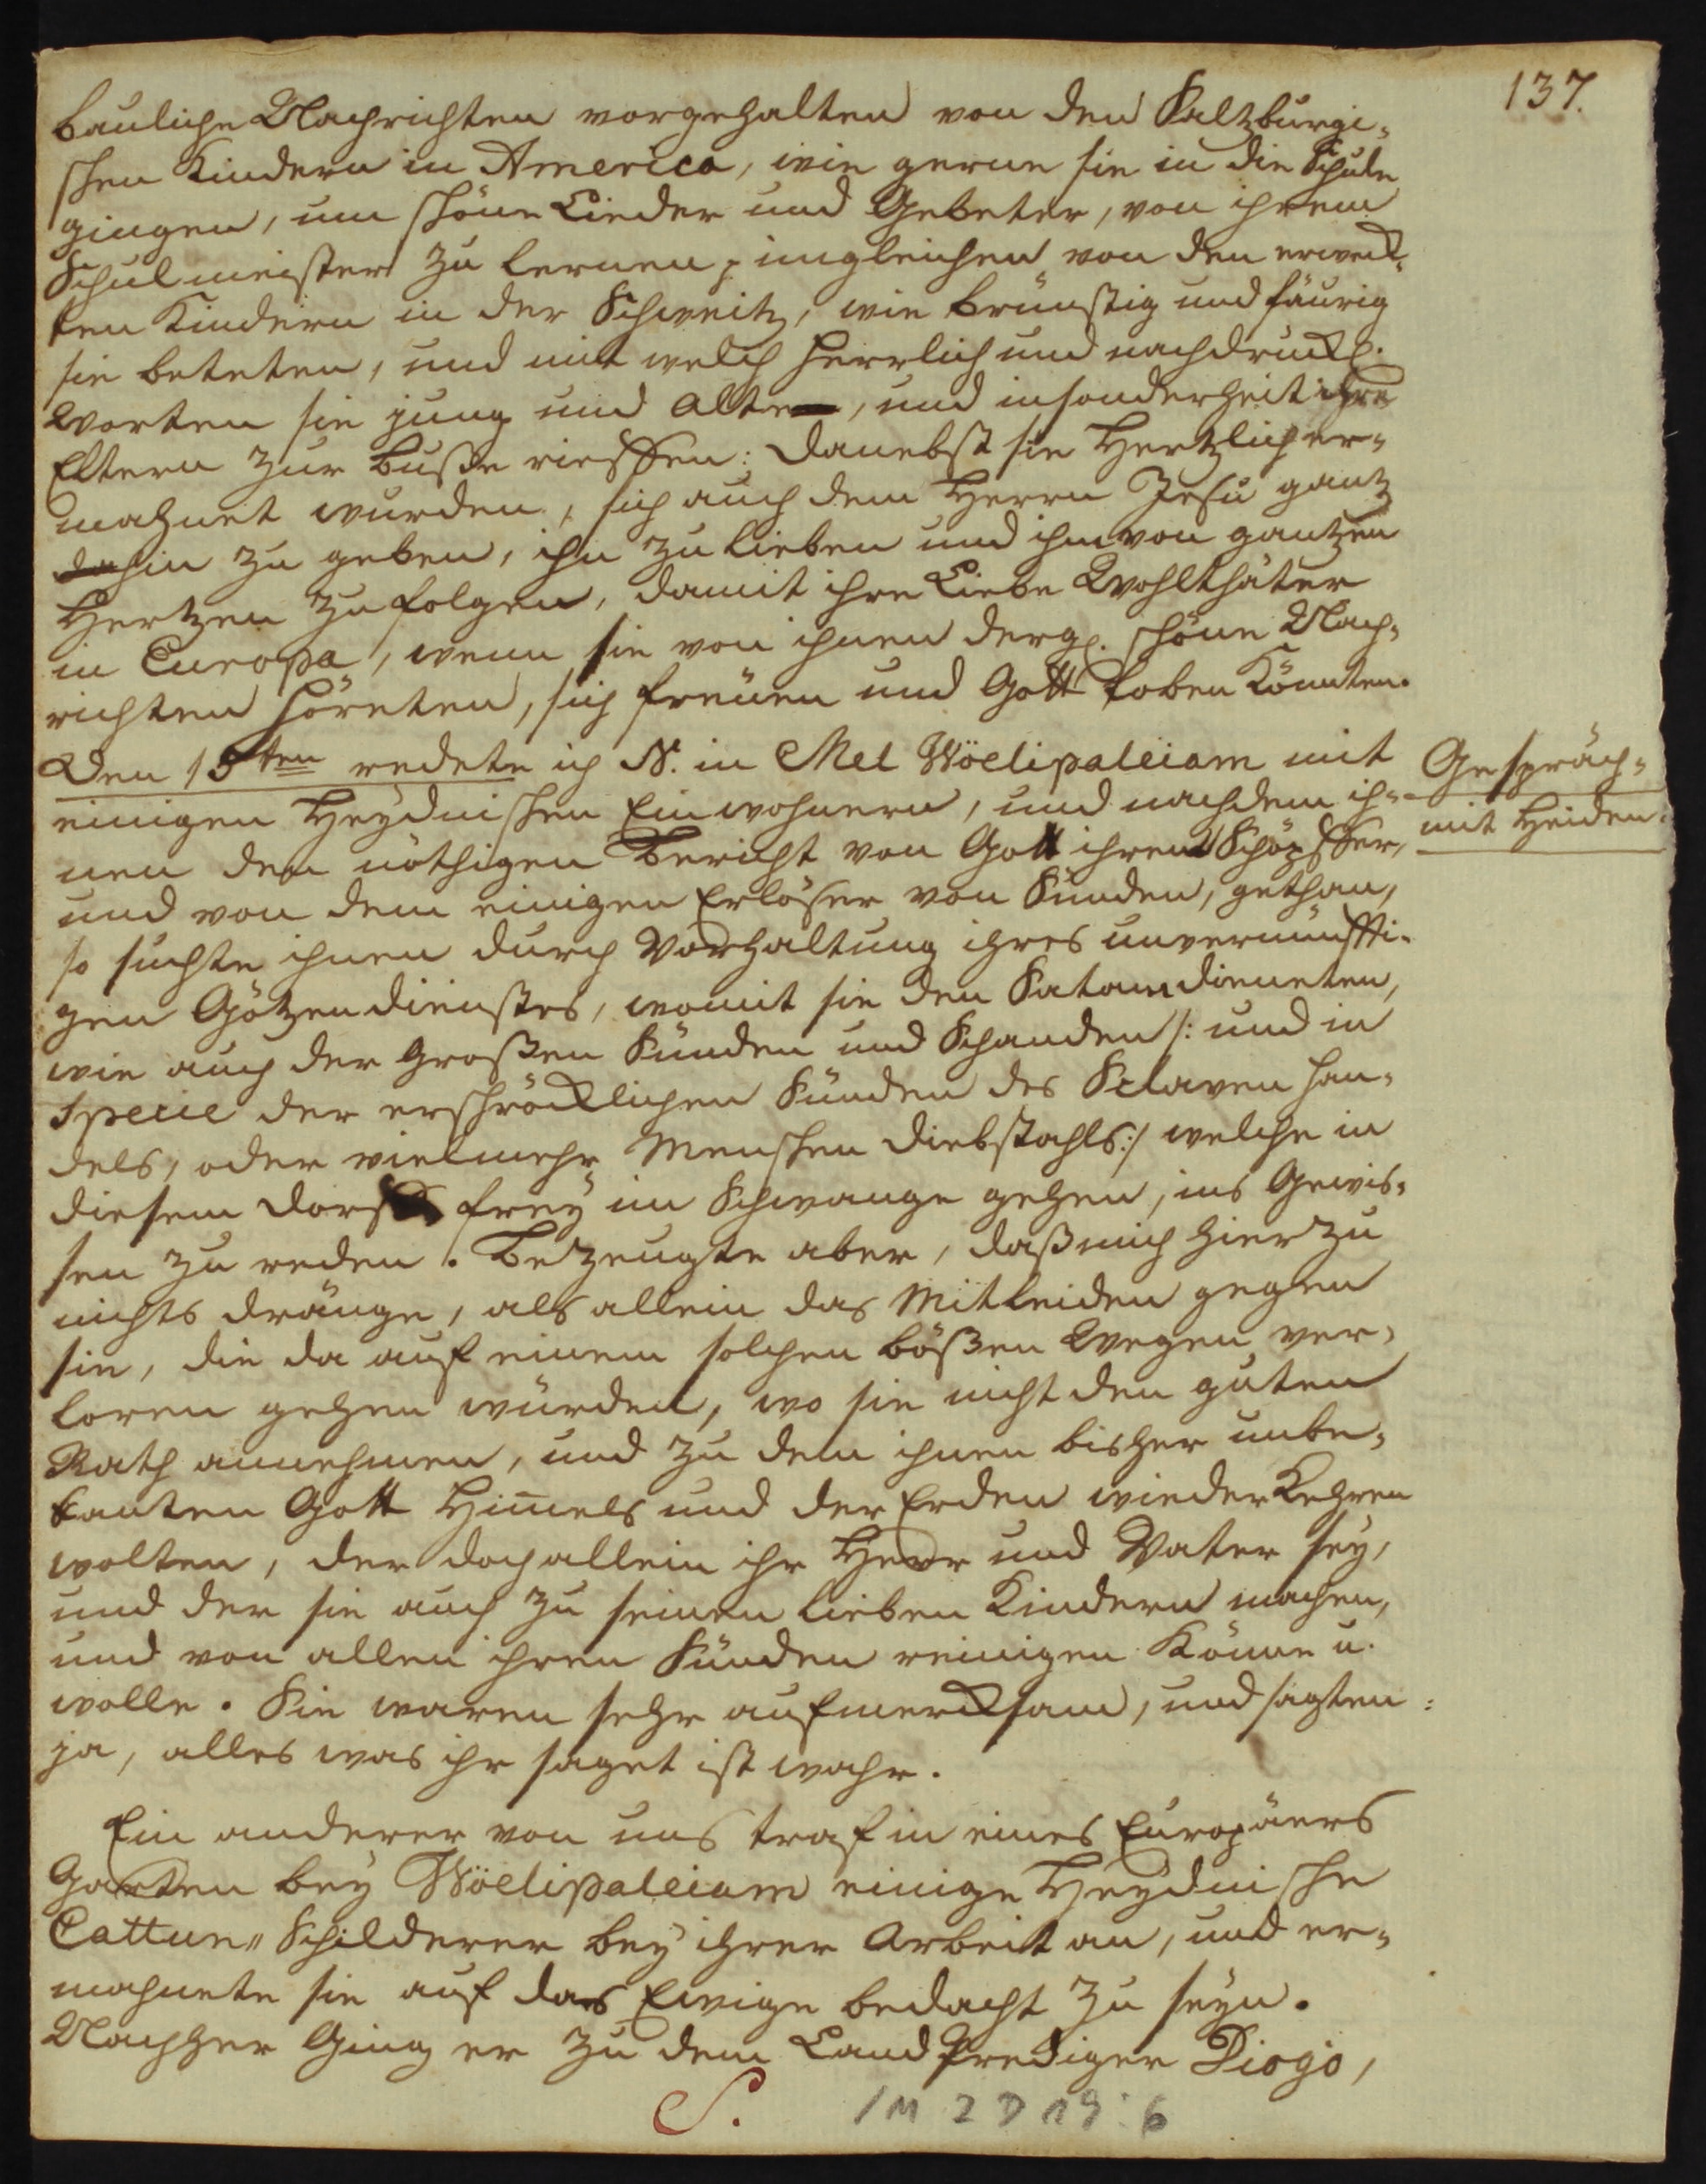 137.
bauliche Nachrichten vorgehalten von den Saltzburgi-
schen Kindern in America, wie gerne sie in die Schule
gingen, um schöne Lieder und Gebeter, von ihrem
Schulmeister zu lernen, imgleichen von den erweck-
ten Kindern in der Schweitz, wie brünstig und fäurig
sie beteten, und mit welch herrlich und nachdruckl.
Worten sie jung und Alte, und insonderheit ihre
Eltern zur Busse rieffen: Danebst sie Hertzlich er-
mahnet wurden, sich auch dem Herrn Jesu gantz
dahin zu geben, ihn zu lieben und ihm von gantzen
Hertzen zu folgen, damit ihre Liebe Wohlthäter
in Europa, wenn sie von ihnen dergl. schöne Nach-
richten höreten, sich freuen und Gott loben Könnten.
Den 15ten redete ich N. in Mel Wöelipaleiam mit
einigen Heydnischen Einwohnern, und nachdem ih-
nen den nöthigen Bericht von Gott ihrem Schöpffer,
und von dem einigen Erlöser von Sünden, gethan,
so suchte ihnen durch Vorhaltung ihres unvernünffti-
gen Götzendienstes, womit sie den Satan dieneten,
wie auch der Großen Sünden und Schanden /: und in
Specie der erschröcklichen Sünden des Sclaven han-
dels, oder vielmehr Menschen Diebstahls:/ welche in
diesem Dorff frey im Schwange gehen, ins Gewis-
sen zu reden. Bezeugte aber, daß mich hierzu
nichts dränge, als allein das Mitleiden gegen
sie, die da auf einem solchen bößen Wegen ver-
loren gehen würden, wo sie nicht den guten
Rath annehmen, und zu dem ihnen bisher unbe-
kanten Gott Him̅els und der Erden wieder Kehren
wolten, der doch allein ihr Herr und Vater sey,
und der sie auch zu seinen lieben Kindern machen,
und von allen ihren Sünden reinigen Könne u.
wolle. Sie waren sehr aufmercksam, und sagten:
ja, alles was ihr saget ist wahr.
Ein anderer von uns traf in eines Europäers
Garten bey Wöelipaleiam einige Heydnische
Cattun-Schilderer bey ihrer Arbeit an, und er-
mahnete sie auf das Ewige bedacht zu seyn.
Nachher Ging er zu dem Land Prediger Diogo,
Gespräch-
mit Heiden.
S.
1M 2D 19:6